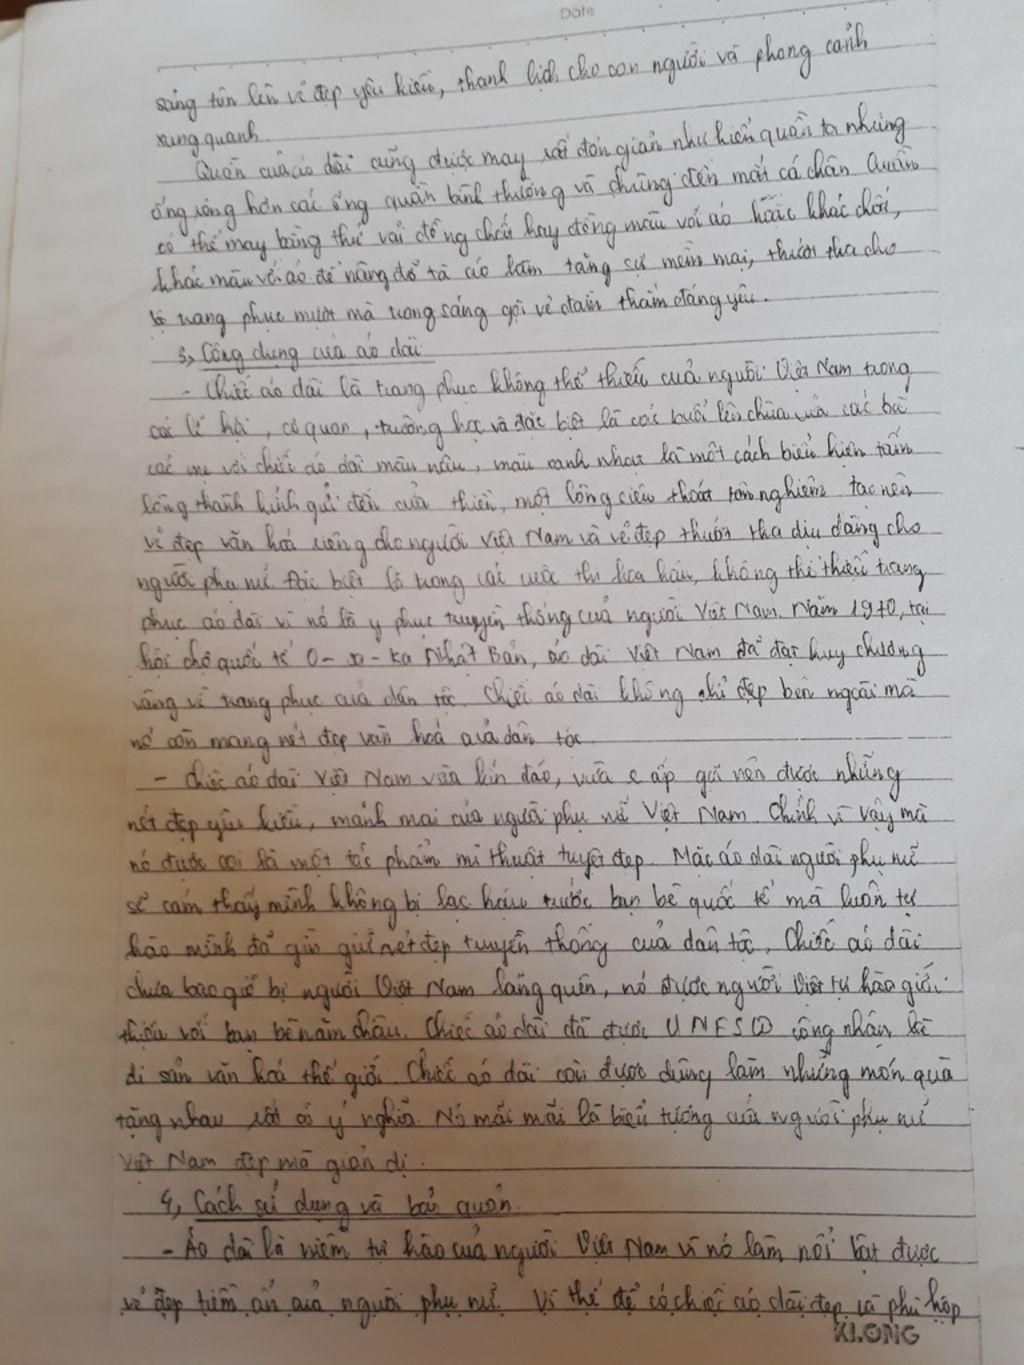 Date
sáng tôn lên vẻ đẹp yêu kiều, thanh lịch cho con người và phong cảnh
xung quanh.
Quần của áo dài cũng được may rất đơn giản như kiểu quần ta nhưng
ống rộng hơn các ống quần bình thường và chừng đến mắt cá chân. Quần
có thể may bằng thứ vải đồng chất hay đồng màu với áo hoặc khác chất,
khác màu với áo để nâng đỡ tà áo làm tăng sự mềm mại, thướt tha cho
bộ trang phục mượt mà trong sáng gợi vẻ đằm thắm đáng yêu.
3, Công dụng của áo dài
- Chiếc áo dài là trang phục không thể thiếu của người Việt Nam trong
các lễ hội, cơ quan, trường học và đặc biệt là các buổi lên chùa của các bà
các mẹ với chiếc áo dài màu nâu, màu xanh là một cách biểu hiện tấm
lòng thành kính gửi đến cửa thiền, một lòng thoát nghiêm tạo nên
vẻ đẹp văn hoá riêng cho người Việt Nam và vẻ đẹp thướt tha dịu dàng cho
người phụ nữ. Đặc biệt là trong các cuộc thi hoa hậu, không thể thiếu trang
phục áo dài vì nó là y phục truyền thống của người Việt Nam. Năm 1970, tại
hội chợ quốc tế Ô-xa-ka Nhật Bản, áo dài Việt Nam đã đạt huy chương
vàng về trang phục của dân tộc. Chiếc áo dài không chỉ đẹp bên ngoài mà
nó còn mang nét đẹp văn hoá của dân tộc
- Chiếc áo dài Việt Nam vừa kín đáo, vừa e ấp gợi nên được những
nét đẹp yêu kiều, mảnh mai của người phụ nữ Việt Nam. Chính vì vậy mà
nó được coi là một tác phẩm mĩ thuật tuyệt đẹp. Mặc áo dài người phụ nữ
sẽ cảm thấy mình không bị lạc hậu trước bạn bè quốc tế mà luôn tự
hào mình đã gìn giữ nét đẹp truyền thống của dân tộc. Chiếc áo dài
chưa bao giờ bị người Việt Nam lãng quên, nó được người Việt tự hào giới
thiệu với bạn bè năm châu. Chiếc áo dài đã được UNESCO công nhận là
di sản văn hoá thế giới. Chiếc áo dài còn được dùng làm những món quà
tặng nhau rất có ý nghĩa. Nó mãi mãi là biểu tượng của người phụ nữ
Việt Nam đẹp mà giản dị.
4, Cách sử dụng và bảo quản.
- Áo dài là niềm tự hào của người Việt Nam vì nó làm nổi bật được
vẻ đẹp tiềm ẩn của người phụ nữ. Vì thế để có chiếc áo dài đẹp và phù hợp
KLONG